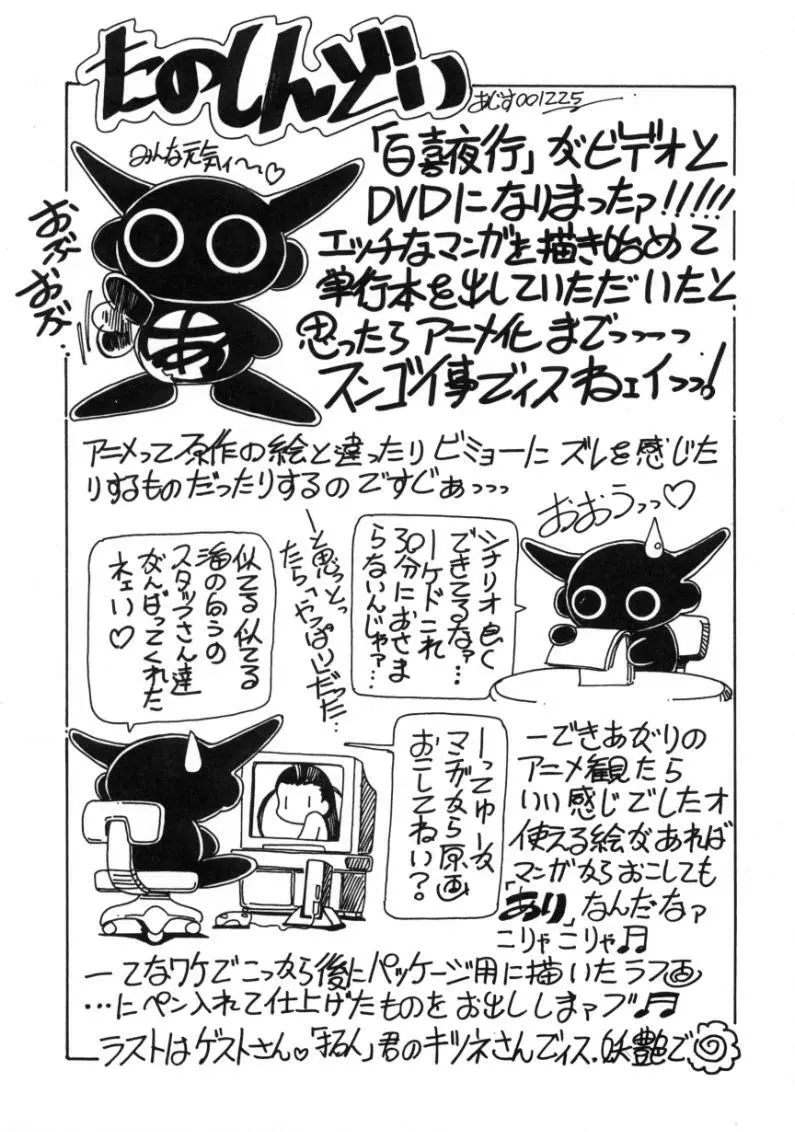 たのしんどい
あじす001225
みんな元気ィ〜♡
おぶ
おぶ…
あ
「百喜夜行」がビデオと
DVDになりまったァ!!!!!
エッチなマンガを描き始めて
単行本を出していただいたと
思ったらアニメ化までっーっ
スンゴイ事でイスねェイっっ!
アニメって原作の絵と違ったりビミョーにズレを感じた
りするものだったりするのですじぁっっっ
おおうっっ♡
シナリオ良く
できてるなァ…
ーケドこれ
30分におさま
らないんじゃァ…
ーと思っとっ
たら「やっぱり」だった…
似てる似てる
海の向うの
スタッフさん達
がんばってくれた
ネェい♡
ーってゆーか
マンガから原画
おこしてねい?。
ーできあがりの
アニメ観たら
いい感じでしたオ
使える絵があれば
マンガからおこしても
「あり」なんだなァ
こりゃこりゃ♬
ーてなワケでこっから後にパッケージ用に描いたラフ画
…にペン入れて仕上げたものをお出ししまァブ♬
ラストはゲストさん♡「拓人」君のキツネさんでイス.妖艶で